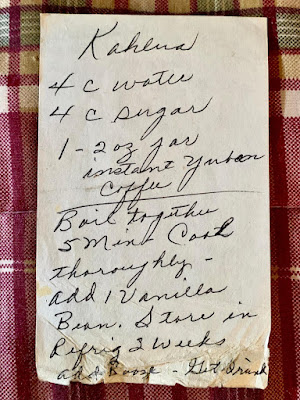 Kahlua
4 C water
4 C sugar
1 - 2 oz jar
instant Yuban
Coffee
Boil together
5 Min - Cool
thoroughly -
add 1 Vanilla
Bean. Store in
Refrig 2 Weeks
add Booze - Get Drunk